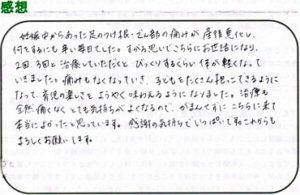 感想
妊娠中からあった足のつけ根・恥骨の痛みが産後悪化し、
何をするにも辛い毎日でした。すがる思いでこちらにお世話になり、
2回、3回と治療していただくと、びっくりするくらい体が軽くなって
いきました。痛みもなくなっていき、子どもをたくさん抱っこできるように
なって、育児の楽しさをようやく味わえるようになりました。治療も
全然痛くなくとても気持ちがよくなるので、がまんせずにこちらに来て
本当によかったと思っています。感謝の気持ちでいっぱいです。これからも
よろしくお願いします。